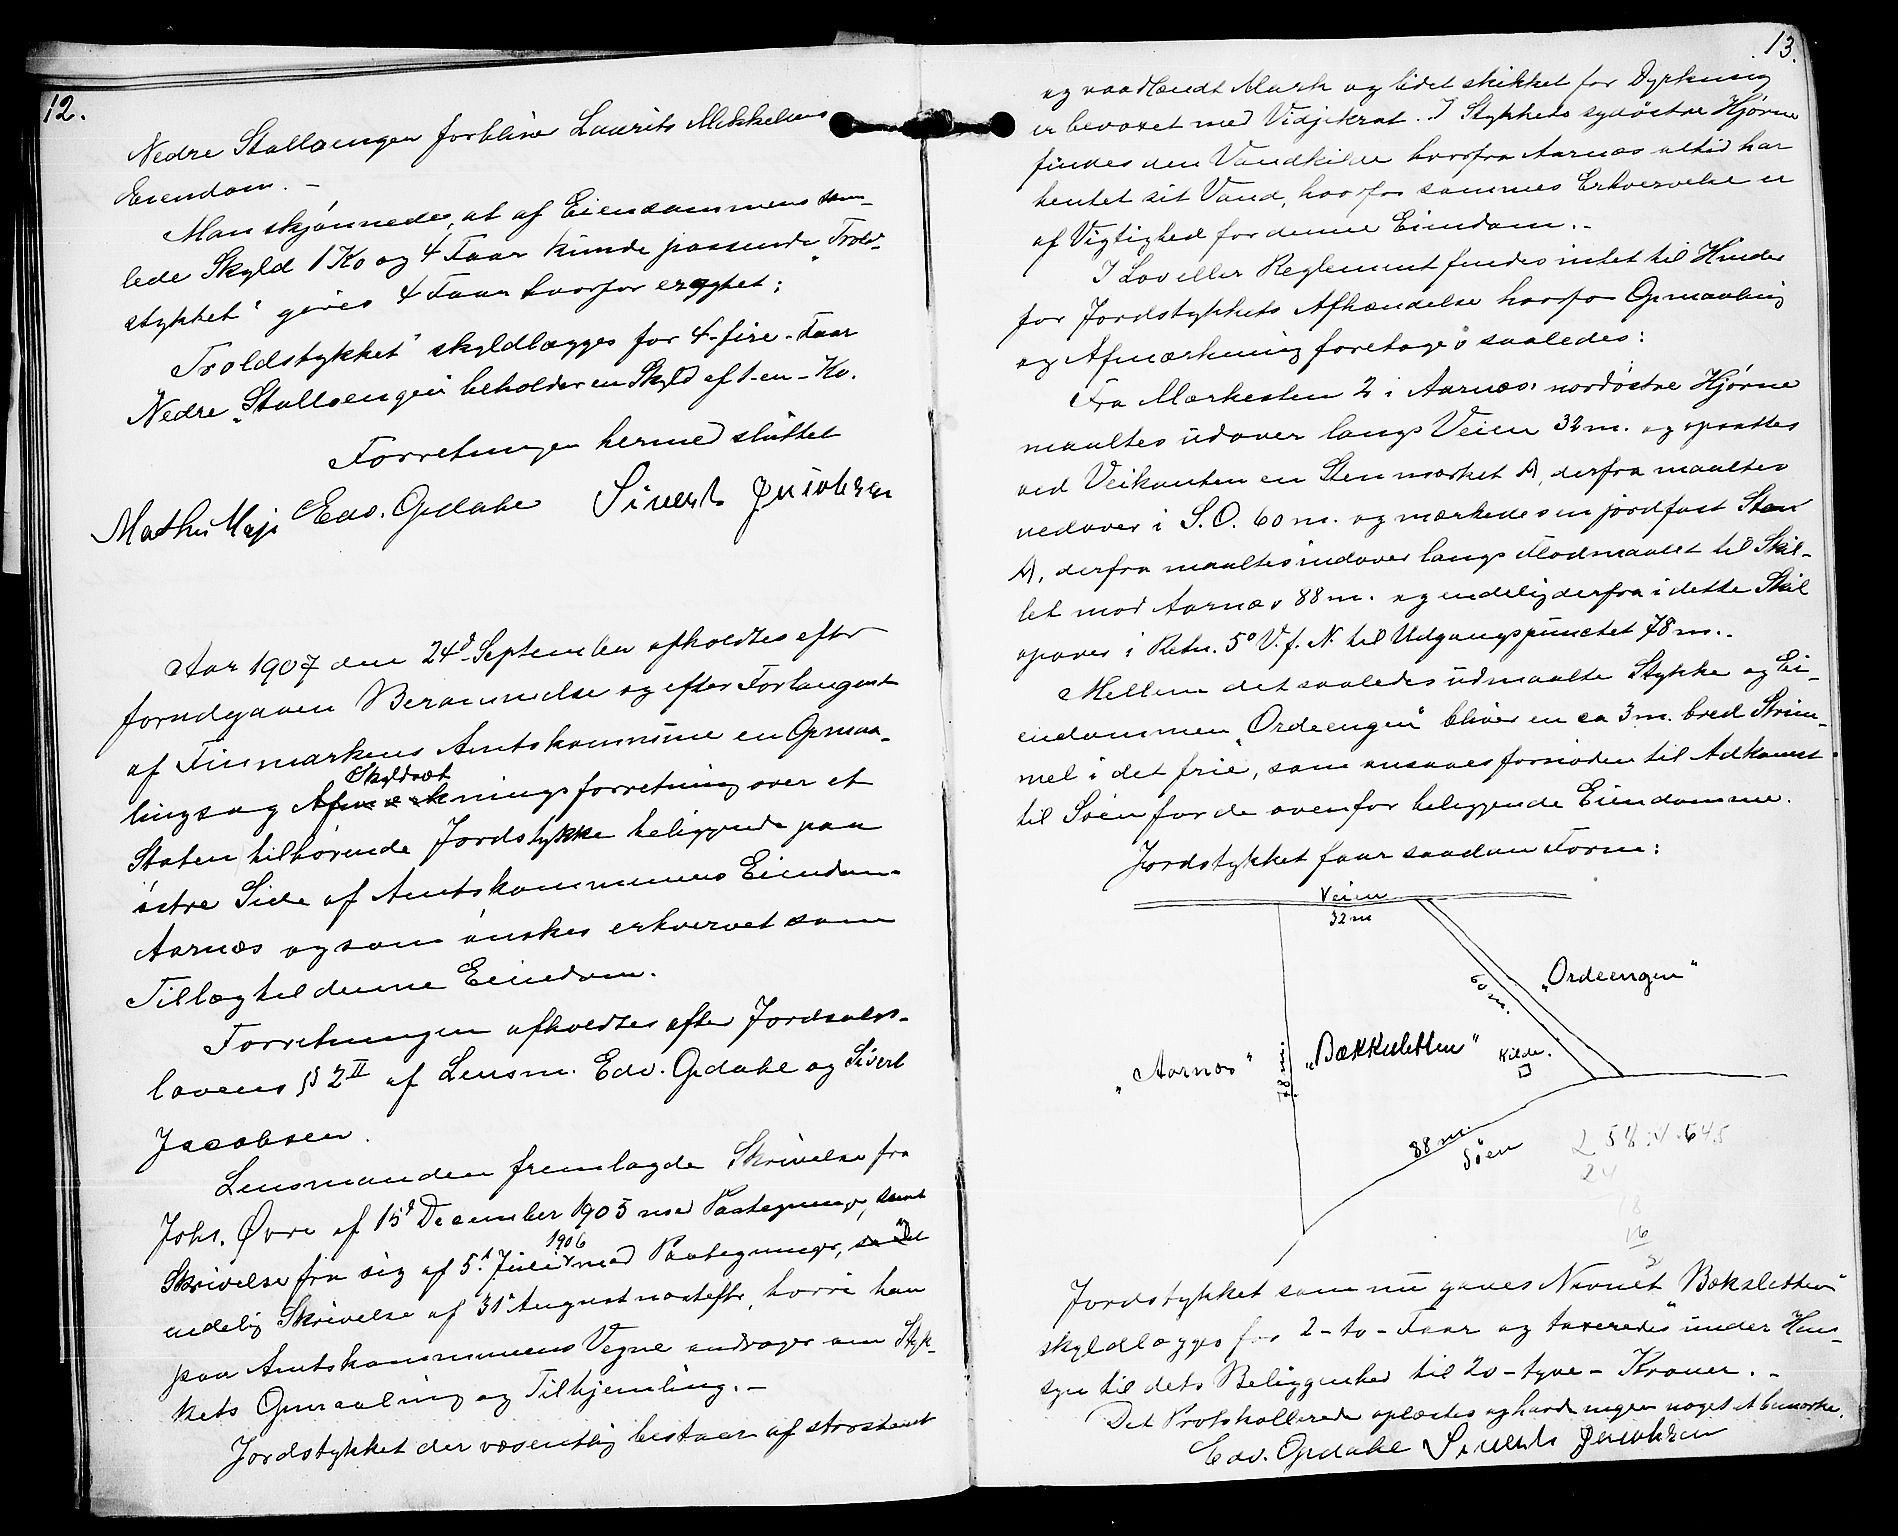 12.
Nedre Stalloengen forbliver Laurits Mikkelsens
Eiendom. –
Man skjønnedes, at af Eiendommens sam-
lede Skyld 1 Ko og 4 Faar kunde passende „Trold-
stykket“ gives 4 Faar hvorfor eragtet:
Troldstykket“ skyldlægges for 4-fire-Faar
Nedre „Stalloengen beholder en Skyld af 1-en-Ko.
Forretningen hermed sluttet
Edv. Opdahl Sivert Jacobsen
Aar 1907 den 24d September afholdtes efter
forudgaaen Berammelse og efter Forlangende
af Finmarkens Amtskommune en Opmaa-
Skyldsæt
lings og Afmærknings forretning over et
Staten tilhørende Jordstykke beliggende paa
østre Side af Amtskommunens Eiendom
Aarnæs og som ønskes erhvervet som
Tillæg til denne Eiendom.
Forretningen afholdtes efter Jordsalgs-
lovens § 2 II af Lensm. Edv. Opdahl og Sivert
Jacobsen.
Lensmanden fremlagde Skrivelse fra
Johs. Øvre af 15d December 1905 med Paategninger, samt
1906
Skrivelse fra sig af 5d Juli med Paategninger, samt
endelig Skrivelse af 31d August næstefter, hvori han
paa Amtskommunens Vegne andrager om Styk-
kets Opmaaling og Tilhjemling. –
Jordstykket der væsentlig bestaar af
13.
og vaadlændt Mark og lidet skikket for Dyrkning
er bevoxet med Vidjekrat. I Stykkets sydøstre Hjørne
findes den Vandkilde hvorfra Aarnæs altid har
hentet sit Vand, hvorfor sammes Erhvervelse er
af Vigtighed for denne Eiendom. –
I Lov eller Reglement findes intet til Hinder
for Jordstykkets Afhændelse hvorfor Opmaaling
og Afmærkning foretoges saaledes:
Fra Mærkesten 2 i Aarnæs nordøstre Hjørne
maaltes udover langs Veien 32 m. og opsattes
ved Veikanten en Sten mærket A, derfra maaltes
nedover i S.O. 60 m. og mærkedes en jordfast Sten
A, derfra maaltes indover langs Flodmaalet til Skil-
let mod Aarnæs 88 m. og endelig derfra i dette Skil
opover i Retn. 5° V. f. N. til Udgangspunctet 78 m. –
Mellem det saaledes udmaalte Stykke og Ei-
endommen „Ordeengen“ bliver en ca 3 m. bred Strim-
mel i det frie, som ansaaes fornøden til Adkomst
til Søen for de ovenfor beliggende Eiendomme.
Jordstykket faar saadan Form:
Veien
32 m
60 m.
„Ordeengen“
„Aarnæs“
78 m.
„Bækkesletten“
Kilde.
88 m.
Søen
24
18
16
Jordstykket som nu gaves Navnet „Bæksletten“
skyldlægges for 2-to-Faar og taxeredes under Hen-
syn til dets Beliggenhed til 20-tyve-Kroner. –
Det Protokollerede oplæstes og havde ingen noget at bemærke.
Edv. Opdahl Sivert Jacobsen